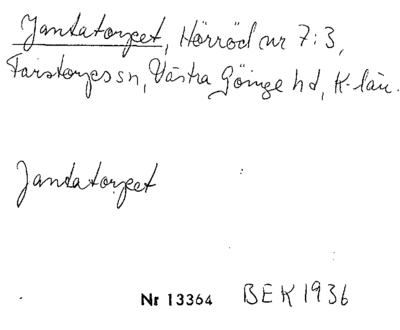 Jantatorpet, Hörröd nr 7:3,
Färstorps sn, Västra Göinge hd, K-län.
Jantatorpet
Nr 13364 BEK 1936